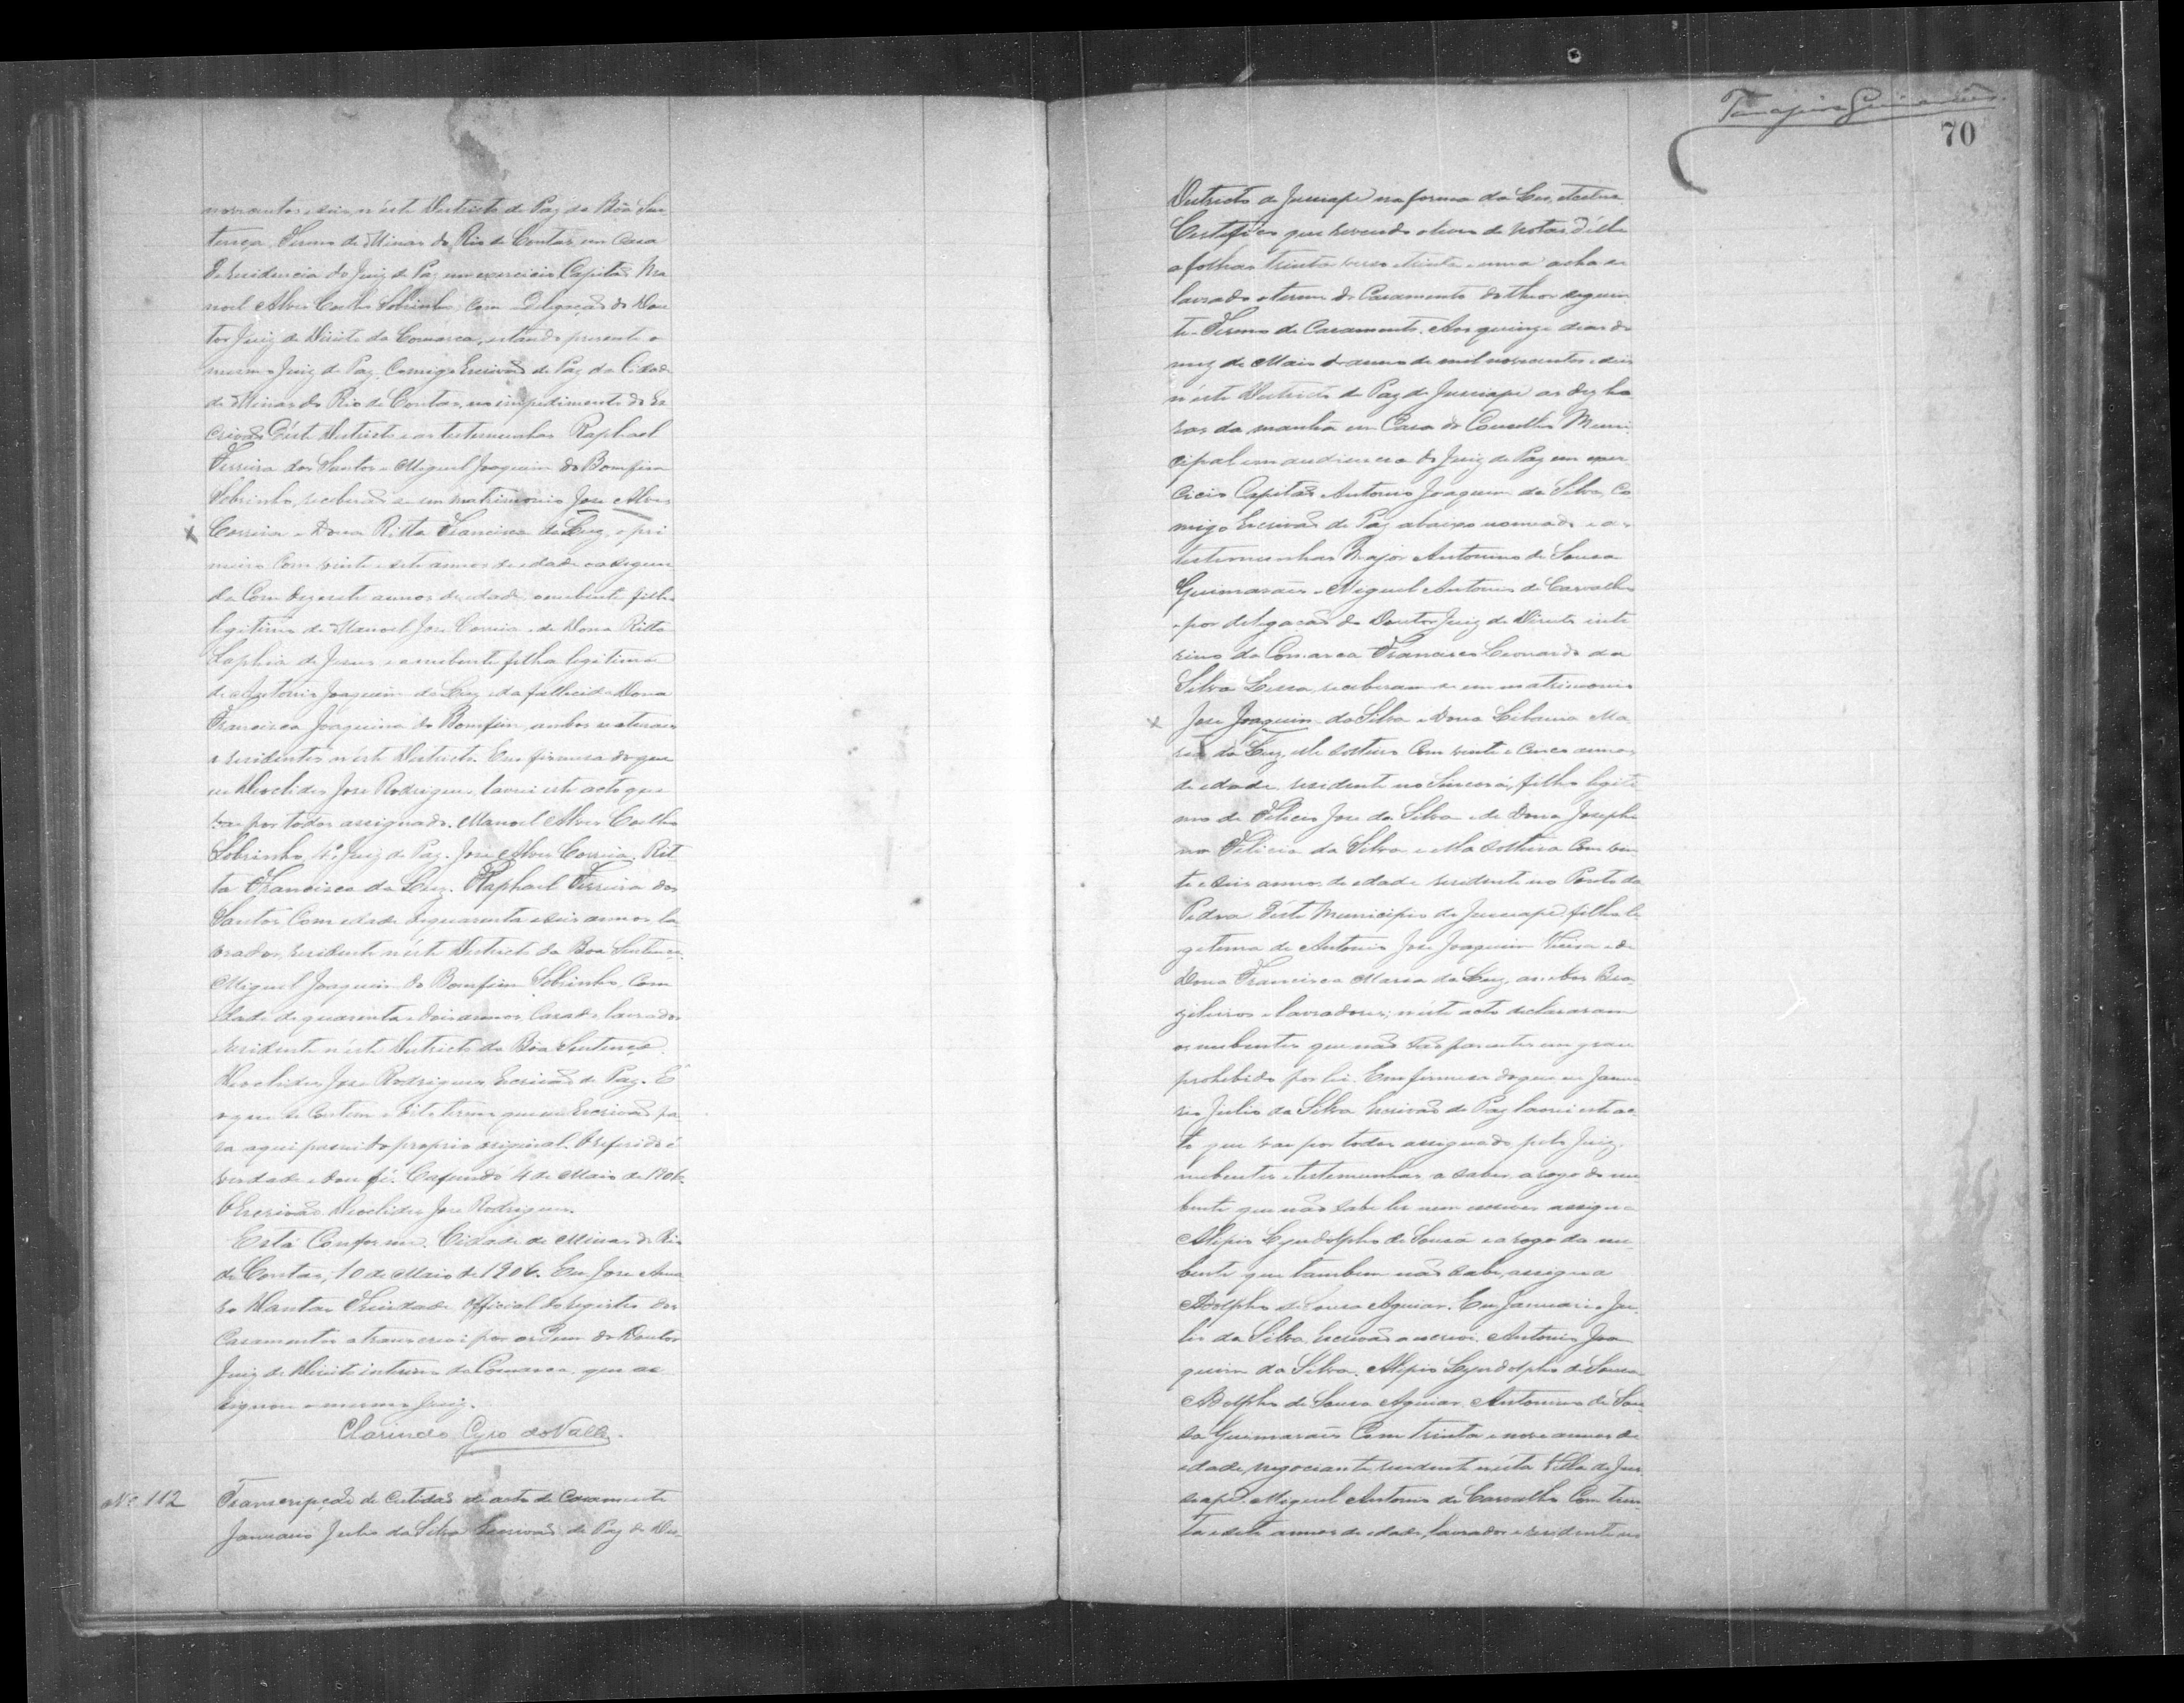 novecentos e seis, n'este Districto de Paz da Bôa Sen
tença, Termo de Minas do Rio de Contas, em Casa
de residencia do Juiz de Paz em exercicio Capitão Ma
noel Alves Coelho Sobrinho, com delegação do Dou
tor Juiz de Direito da Comarca, estando presente o
mesmo Juiz de Paz, Comigo Escrivão de Paz da Cidade
de Minas do Rio de Contas, no impedimento do Es
crivão d'este Districto e as testemunhas Raphael
Ferreira dos Santos e Miguel Joaquim do Bomfim
Sobrinho, receberão se em matrimonio José Alves
x Correia e Dona Ritta Francisca da Luz, o pri
meiro Com vinte e sete annos de edade e a segun
da Com dezesete annos de edade, o nubente filho
legitimo de Manoel José Correia e de Dona Ritta
Sophia de Jesus e a nubente filha legitima
de Antonio Joaquim da Luz e da fallecida Dona
Francisca Joaquina do Bomfim, ambos naturaes
e residentes n'este Districto. Em firmesa do que
eu Deoclides José Rodrigues, lavrei este acto que
vae por todos assignado. Manoel Alves Coelho
Sobrinho, 1º Juiz de Paz. José Alves Correia. Rit
ta Francisca da Luz. Raphael Ferreira dos
Santos Com edade de quarenta e seis annos la
vrador, residente n'este Districto da Boa Sentença.
Miguel Joaquim do Bomfim Sobrinho, Com
edade de quarenta e dois annos, Casado, lavrador
e residente n'este Districto da Bôa Sentença.
Deoclides José Rodrigues, Escrivão de Paz. É
o que se Contem e dito termo que eu Escrivão pa
ra aqui passei do proprio original. O referido é
verdade e dou fé. 4 de Maio de 1906.
O Escrivão Deoclides José Rodrigues.
Está Conforme. Cidade de Minas do Rio
de Contas, 10 de Maio de 1906. Eu, José
Dantas Trindade Official do registro dos
Casamentos a transcrevi por ordem do Doutor
Juiz de Direito interino da Comarca, que as
signou o mesmo Juiz.
Clarindo Cyro do Valle.
Nº 112 Transcripção de Certidão de acto de Casamento
Januario Julio da Silva Escrivão de Paz do Dis-
Tanajura Guimarães.
70
Districto de Jussiape na forma da Lei, etcetra
Certifico que revendo o livro de notas d'este
a folhas trinta verso e trinta e uma acha se
lavrado o termo de Casamento do theor seguin
te. Termo de Casamento. Aos quinze dias do
mez de Maio do anno de mil novecentos e seis
n'este Districto de Paz de Jussiape as dez ho
ras da manhã em Casa do Conselho Muni-
cipal em audiencia do Juiz de Paz em exer-
cicio Capitão Antonio Joaquim da Silva, Co
migo Escrivão de Paz abaixo nomeado e as
testemunhas Major Antonino de Sousa
Guimarães e Miguel Antonio de Carvalho
e por delegacão do Doutor Juiz de Direito inte
rino da Comarca Francisco Leonardo da
Silva Lessa, receberam se em matrimonio
x José Joaquim da Silva e Dona Libania Ma
ria da Luz, elle solteiro Com vinte e cinco annos
de edade, residente no Sincorá, filho legiti
mo de Felicio José da Silva e de Dona Josephi
na Felicia da Silva e ella solteira Com vin
te e seis annos de edade residente no Porto da
Pedra d'este Municipio de Jussiape, filha le
gitima de Antonio José Joaquim Vieira e de
Dona Francisca Maria da Luz, ambos Bra
zileiros e lavradores; n'este acto declararam
os nubentes que não são parentes em grau
prohibido por lei. Em firmesa do que eu Janua
rio Julio da Silva Escrivão de Paz lavrei este ac
to que vae por todos assignado pelo Juiz,
nubentes e testemunhas a saber, a rogo do nu
bente que não sabe ler nem escrever assigna
Alipio Lyndolpho de Sousa e a rogo da nu-
bente que tambem não sabe, assigna
Adolpho de Sousa Aguiar. Eu Januario Ju-
lio da Silva, Escrivão o escrevi. Antonio Joa
quim da Silva. Alipio Lyndolpho de Sousa
Adolpho de Sousa Aguiar. Antonino de Sou
sa Guimarães Com trinta e nove annos de
edade, negociante, residente n'esta Villa de Jus
siape. Miguel Antonio de Carvalho Com trin
ta e sete annos de edade, lavrador e residente no